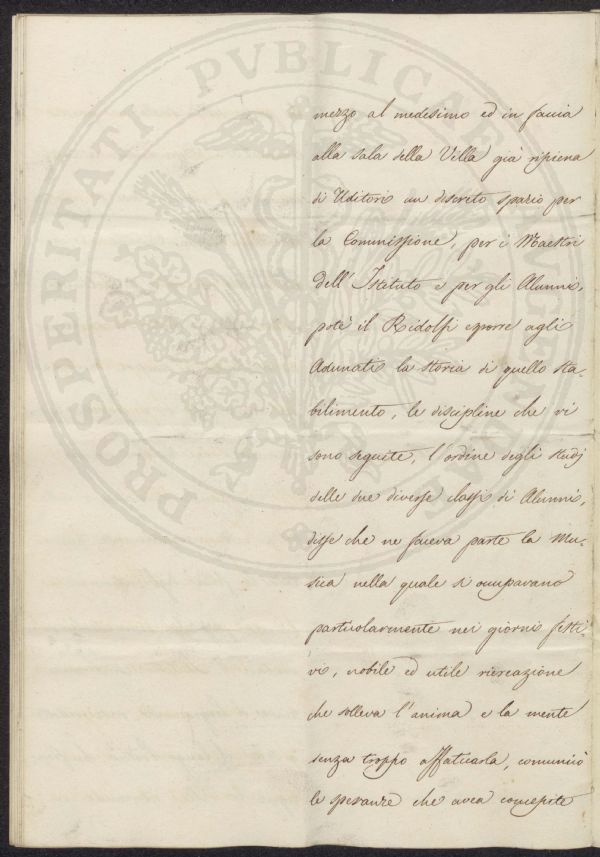 PROSPERITATI PVBLICAE
mezzo al medesimo ed in faccia
alla sala della Villa già ripiena
di Uditori un discreto spazio per
la Commissione, per i Maestri
dell' Istituto e per gli Alunni,
potè il Ridolfi esporre agli
Adunati la storia di quello sta-
bilimento, le discipline che vi
sono seguite, l'ordine degli studj
delle due diverse classi di Alunni,
disse che ne faceva parte la Mu-
sica nella quale si occupavano
particolarmente nei giorni festi-
vi, nobile ed utile ricreazione
che solleva l'anima e la mente
senza troppo affaticarla, comunicò
le speranze che avea concepite